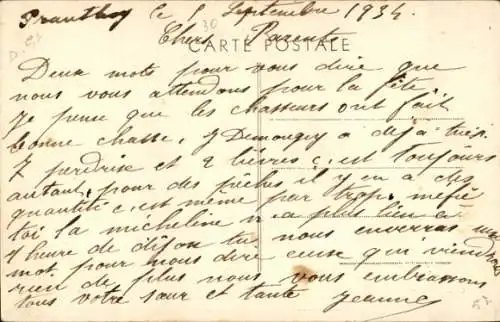 Prauthoy le 1 Septembre 1934.
30
D. 52
Chers Parents
CARTE POSTALE
Deux mots pour vous dire que
nous vous attendons pour la fête
Je pense que les chasseurs ont fait
bonne chasse, J Demongey a déja tué
7 perdrix et 2 lièvres c'est toujours
autant, pour des pêches il y en a des
quantité c'est même par trop, méfie
toi la micheline n'a plus lieu à
7 heure de dijon tu nous enverras un
mot pour nous dire ceux qui viendront
rien de plus nous vous embrassons
tous votre sœur et tante Jeanne
52